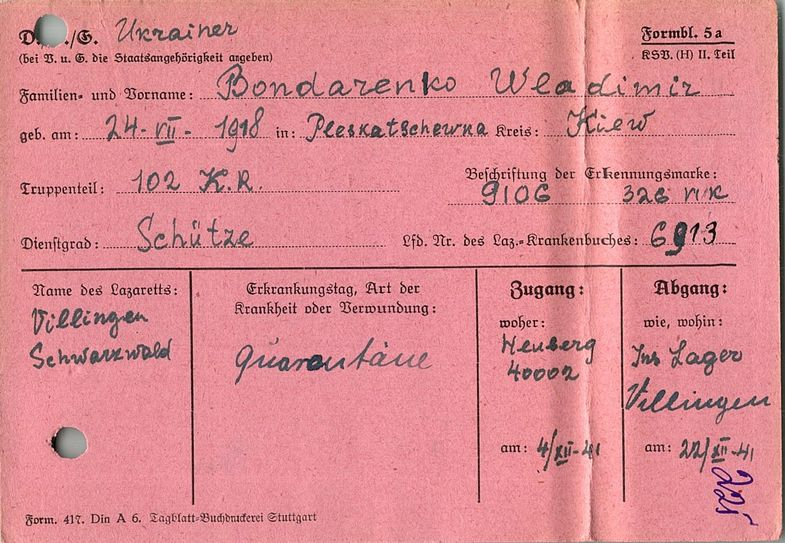 D. /G. Ukrainer
Formbl. 5a
(bei V. u. G. die Staatsangehörigkeit angeben)
KSV. (H) II. Teil
Familien- und Vorname: Bondarenko Wladimir
geb. am: 24-VII-1918 in: Pleskatschewka Kreis: Kiew
Truppenteil: 102 K.R.
Beschriftung der Erkennungsmarke:
9106 326
Dienstgrad: Schütze
Lfd. Nr. des Laz.-Krankenbuches: 6913
Name des Lazaretts:
Villingen
Schwarzwald
Erkrankungstag, Art der
Krankheit oder Verwundung:
Quarantäne
Zugang:
woher:
Heuberg
40002
am: 4/XII-41
Abgang:
wie, wohin:
Ins Lager
Villingen
am: 22/XII-41
221
Form. 417. Din A 6. Tagblatt-Buchdruckerei Stuttgart